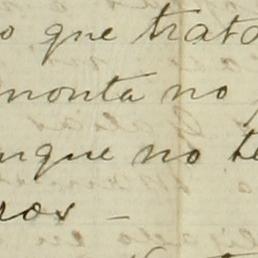 o que trata
monta no
unque no te
ros –